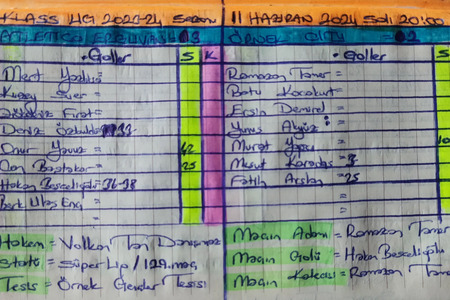 KLASS LİG 2023-24 Sezonu
11 HAZİRAN 2024 SALI 20:00
ATLETİCO = 03
ÖRNEK CİTY = 02
Goller S K
Mert =
Kuzey =
Fırat =
Deniz 33
Onur Yavuz = 42
Can Baştakar = 25
Hakan Beşedioğlu = 36-38
Berk Ulaş Eng =
Goller S
Ramazan Taner =
Batu =
Ersin Demirel =
Yunus Akyüz =
Murat = 10
Mesut Karadaş = 3
Fatih Arslan = 25
Hakem = Volkan Tan
Statü = Süper Lig / 129. maç
Tesis = Örnek Gençler Tesisi
Maçın Adamı = Ramazan Taner
Maçın Golü = Hakan Beşedioğlu
Maçın Kalecisi = Ramazan Taner